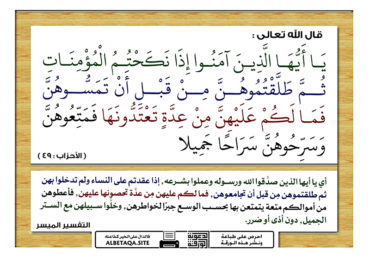 قال الله تعالى :
يَا أَيُّهَا الَّذِينَ آمَنُوا إِذَا نَكَحْتُمُ الْمُؤْمِنَاتِ
ثُمَّ طَلَّقْتُمُوهُنَّ مِنْ قَبْلِ أَنْ تَمَسُّوهُنَّ
فَمَا لَكُمْ عَلَيْهِنَّ مِنْ عِدَّةٍ تَعْتَدُّونَهَا فَمَتِّعُوهُنَّ
وَسَرِّحُوهُنَّ سَرَاحًا جَمِيلًا
( الأحزاب : ٤٩ )
أي يا أيها الذين صدَّقوا الله ورسوله وعملوا بشرعه ، إذا عقدتم على النساء ولم تدخلوا بهن
ثم طلقتموهن مِن قبل أن تجامعوهن ، فما لكم عليهن مِن عدَّة تحصونها عليهن ، فأعطوهن
من أموالكم متعة يتمتعن بها بحسب الوسع جبرًا لخواطرهن ، وخلُّوا سبيلهن مع الستر
الجميل ، دون أذى أو ضرر.
التفسير الميسر
احرص على طباعة
ونشر هذه الورقة
فالدال على الخير كفاعله
ALBETAQA.SITE